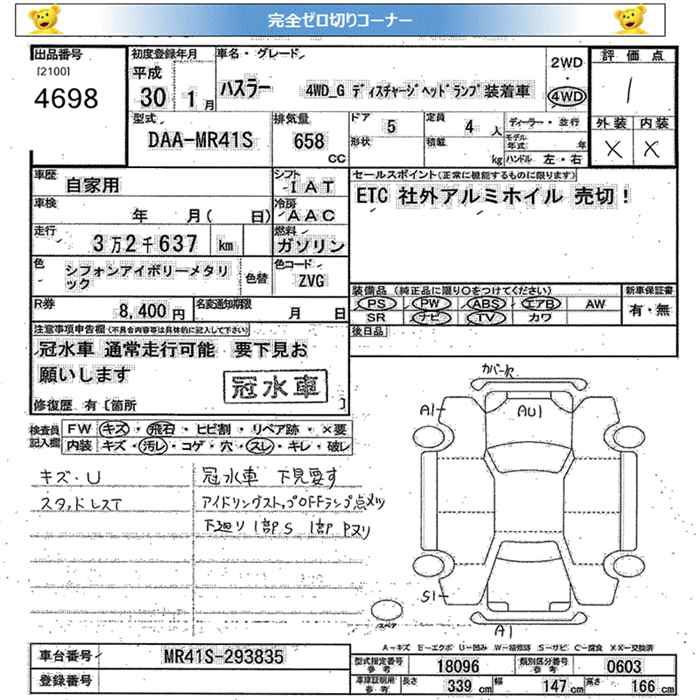 完全ゼロ切りコーナー
出品番号
[2100]
4698
初度登録年月
平成
30 1月
車名・グレード
ハスラー 4WD_G ディスチャージヘッドランプ装着車
2WD
4WD
評価点
1
外装 内装
× ×
型式
DAA-MR41S
排気量
658
cc
ドア
5
定員
4 人
形状
積載
kg
ディーラー・並行
モデル年式 年
ハンドル 左・右
車歴
自家用
シフト
IAT
車検
年 月( 日)
冷房
AAC
走行
3万2千637 km
燃料
ガソリン
色
シフォンアイボリーメタリック
色替
色コード
ZVG
セールスポイント(正常に機能するものに限ります)
ETC 社外アルミホイル 売切!
装備品(純正品に限り○をつけてください)
PS PW ABS エアB AW
SR ナビ TV カワ
新車保証書
有・無
後日品
R券
8,400円
名変通知期限
月 日
注意事項申告欄(不具合内容等は具体的に記入して下さい)
冠水車 通常走行可能 要下見お
願いします
冠水車
修復歴 有〔箇所 〕
検査員
記入欄
FW キズ・飛石・ヒビ割・リペア跡・×要
内装 キズ・汚レ・コゲ・穴・スレ・キレ・破レ
キズ・U
スタッドレスT
冠水車 下見要す
アイドリングストップOFFランプ点メツ
下廻り1部S 1部Pヌリ
カバー欠
A1
AU1
S1
A1
スペア
A-キズ E-エクボ U-凹み W-補修跡 S-サビ C-腐食 XX-交換済
車台番号
MR41S-293835
登録番号
型式指定番号
参考
18096
類別区分番号
参考
0603
車庫証明用
参考
長さ
339 cm
幅
147 cm
高さ
166 cm